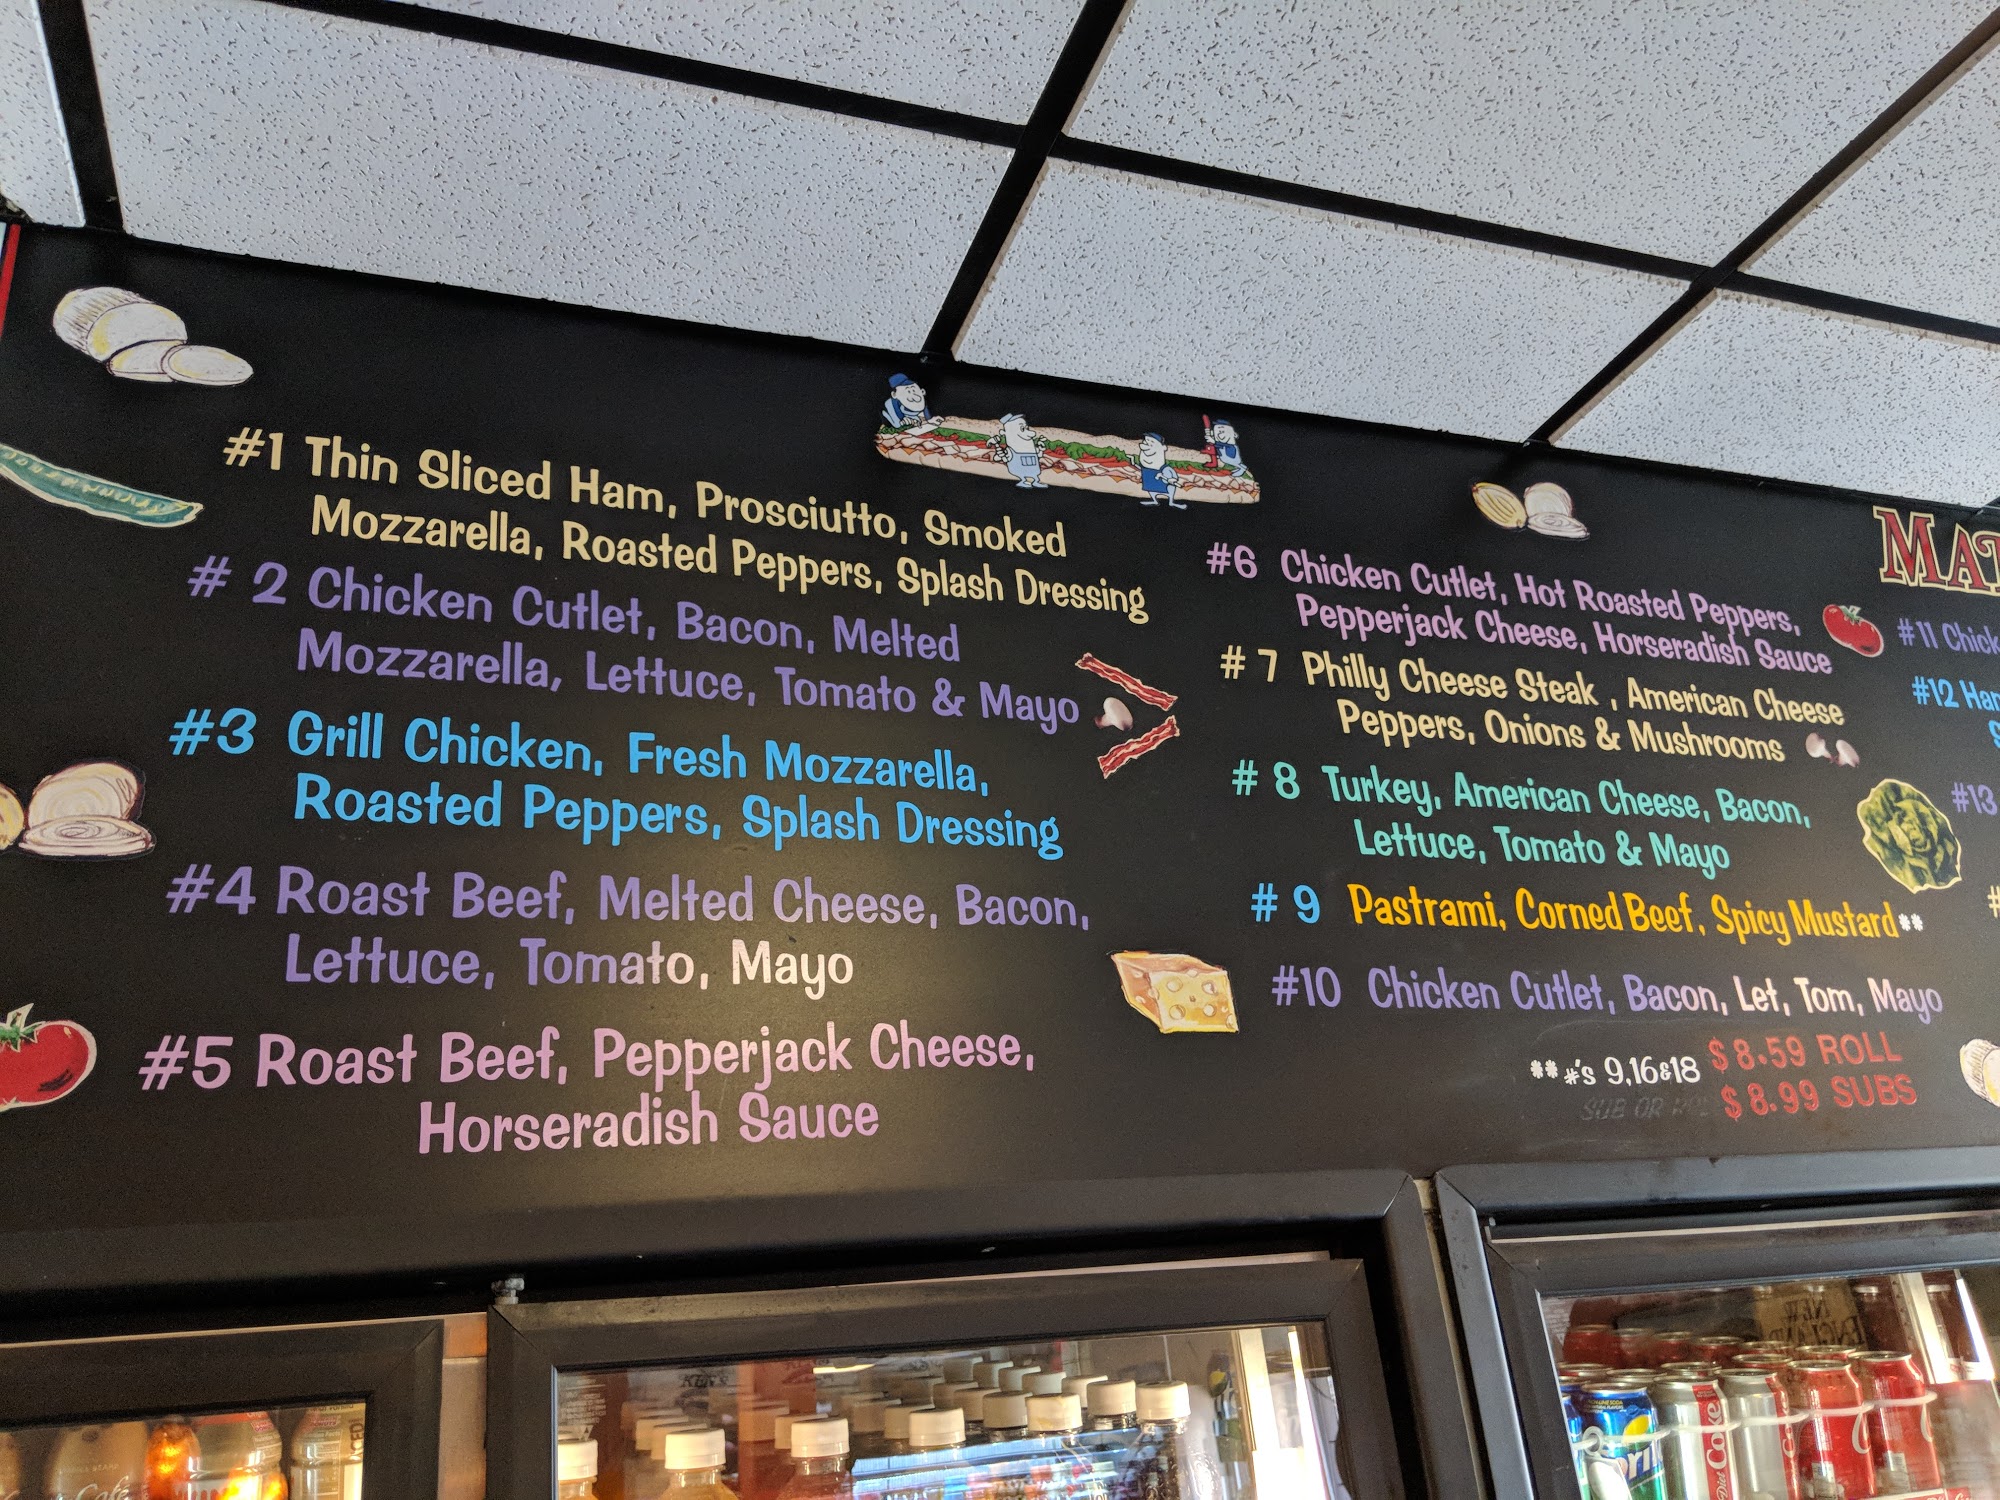 #1 Thin Sliced Ham, Prosciutto, Smoked
Mozzarella, Roasted Peppers, Splash Dressing
# 2 Chicken Cutlet, Bacon, Melted
Mozzarella, Lettuce, Tomato & Mayo
#3 Grill Chicken, Fresh Mozzarella,
Roasted Peppers, Splash Dressing
#4 Roast Beef, Melted Cheese, Bacon,
Lettuce, Tomato, Mayo
#5 Roast Beef, Pepperjack Cheese,
Horseradish Sauce
#6 Chicken Cutlet, Hot Roasted Peppers,
Pepperjack Cheese, Horseradish Sauce
# 7 Philly Cheese Steak , American Cheese
Peppers, Onions & Mushrooms
# 8 Turkey, American Cheese, Bacon,
Lettuce, Tomato & Mayo
# 9 Pastrami, Corned Beef, Spicy Mustard**
#10 Chicken Cutlet, Bacon, Let, Tom, Mayo
**#'s 9,16&18 $8.59 ROLL
SUB OR $8.99 SUBS
#11
#12
#13
NEW
Diet Coke